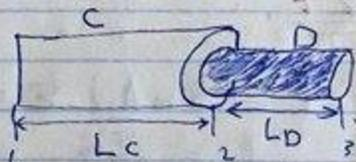 C
D
LC
LD
1
2
3